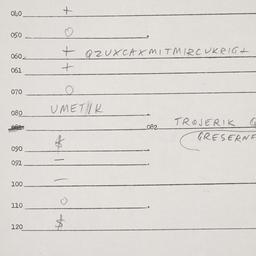 040 +
050 O
060 + QZUXCAXMITMIRCUKRIG+
061 +
070 O
080 UMET//K
082 TROJERIK
GRESERNF
090 $
091 –
100 –
110 O
120 $